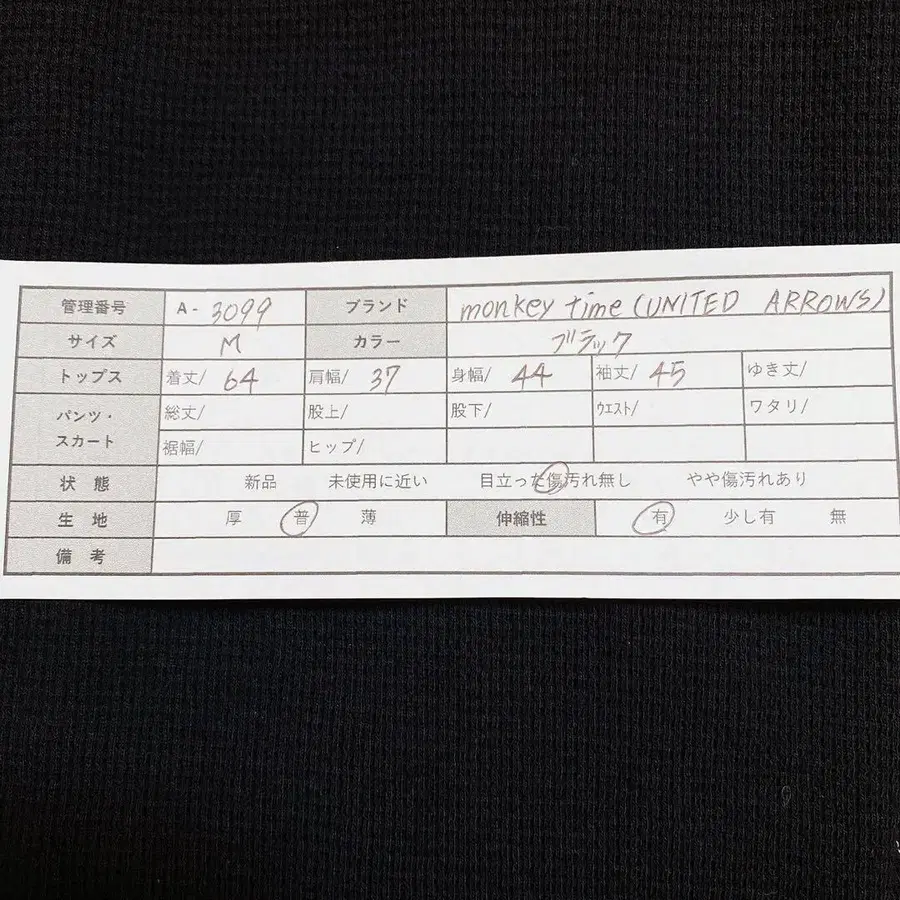 管理番号 A- 3099 ブランド monkey time (UNITED ARROWS)
サイズ M カラー ブラック
トップス 着丈/ 64 肩幅/ 37 身幅/ 44 袖丈/ 45 ゆき丈/
パンツ・スカート 総丈/ 股上/ 股下/ ウエスト/ ワタリ/
裾幅/ ヒップ/
状態 新品 未使用に近い 目立った傷汚れ無し やや傷汚れあり
生地 厚 普 薄 伸縮性 有 少し有 無
備考